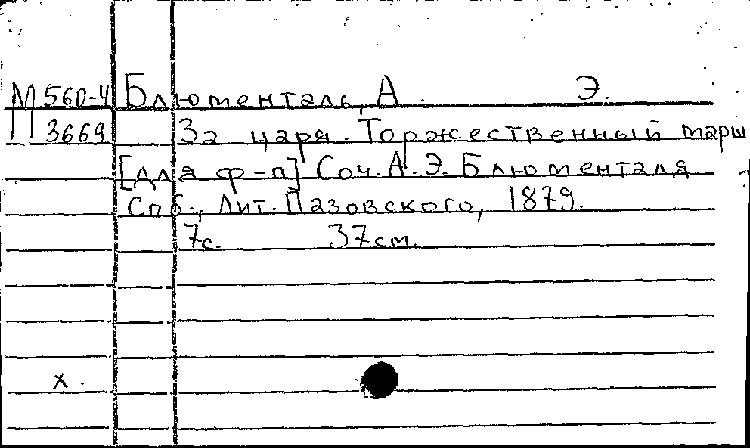 М 560-4 Блюменталь, А. Э.
П 3669 За царя. Торжественный марш
[для ф-п] Соч. А. Э. Блюменталя
Спб., Лит. Пазовского, 1879.
7с. 37см.
х